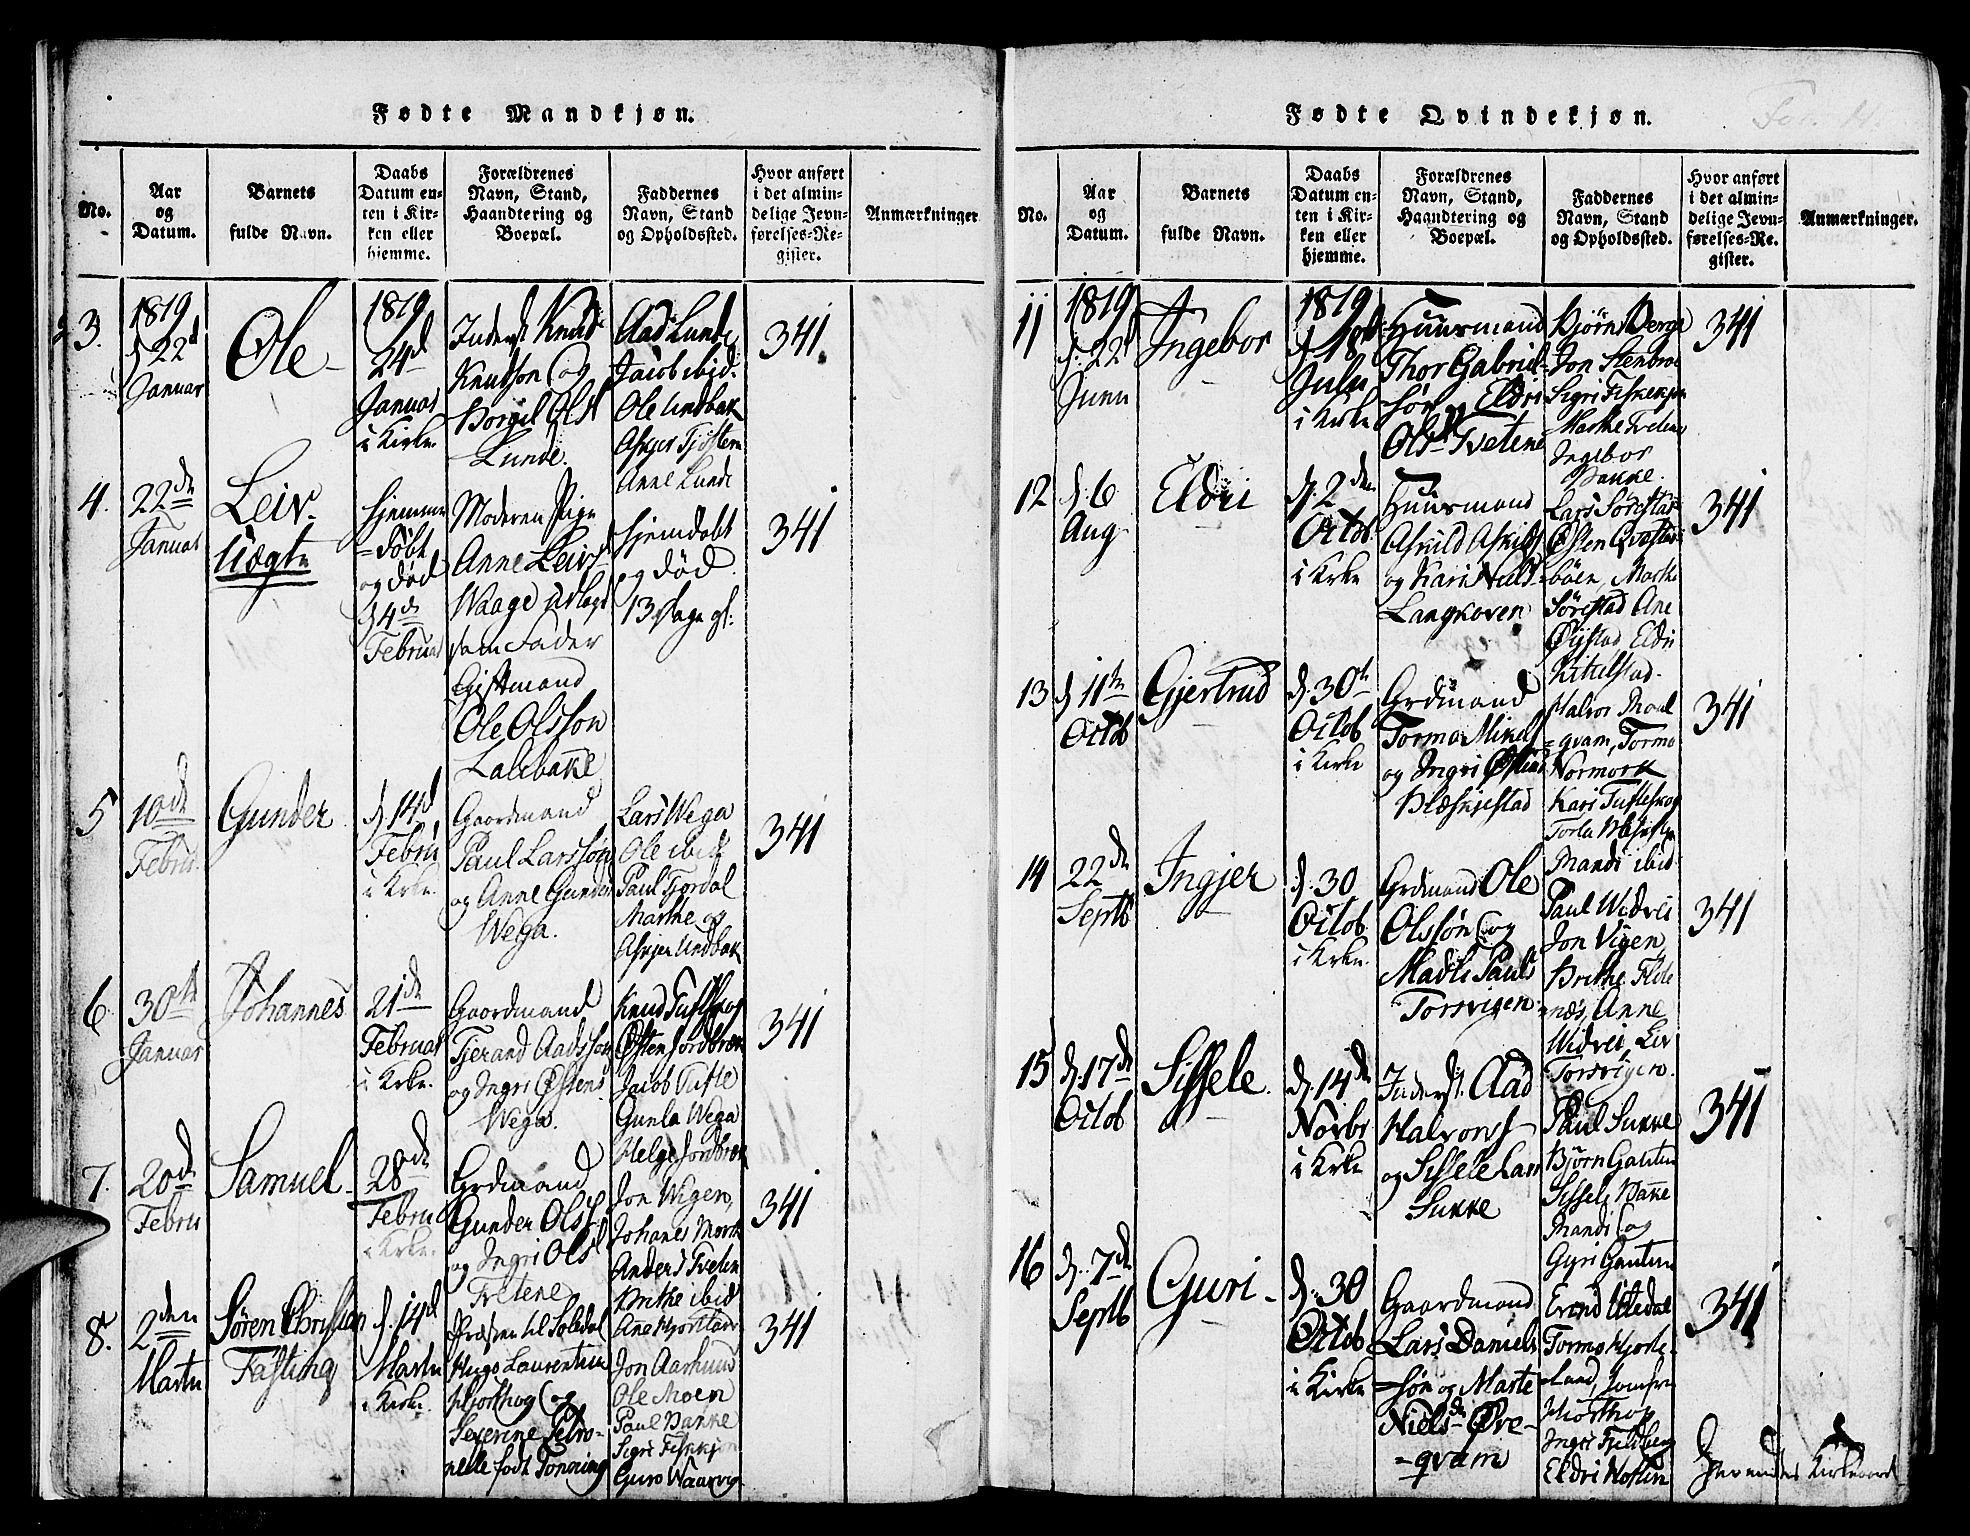 Fødte Mandkjøn.
No.
Aar
og
Datum.
Barnets
fulde Navn.
Daabs
Datum en-
ten i Kir-
ken eller
hjemme.
Forældrenes
Navn, Stand,
Haandtering og
Boepæl.
Faddernes
Navn, Stand
og Opholdssted.
Hvor anført
i det almin-
delige Jevn-
førelses-Re-
gister.
Anmærkninger
3.
1819
d 22d
Januar
Ole
1819
24d
Januar
i Kirke
Inderst Knud
Knutson og
Lunde.
Aad Lunde
Jacob ibid.
Ole Lindbak
Anne Lunde
341.
4.
22de
Januar
Leiv.
Uægte
Hjemme
=døbt
og død
d 4de
Februar
Moderen Pige
Anne Leivs
Waage udlagt
som Fader
Giftmand
Ole Olsson
Hjemdøbt
og død
13 Dage gl:
341
5
10de
Febru.
Gunder
d 14d
Febru
i Kirke.
Gaardmand
Paul Larssøn
og Anne Gunders
Wega.
Lars Wega
Ole ibid
Paul Fjordal
Marthe og
Lindbak
341
6
30te
Januar
Johannes
21de
Februar
i Kirke.
Gaardmand
Tjerand Aadsson
og Ingri Østens
Wega.
Knud Tufteskog
Østen Jordbrek
Jacob Tufte
Gunla Wega
Helge Jordbrek
341
7.
20de
Febru
Samuel
28de
Febru
i Kirke.
Grdmand
Gunder Olss
og Ingri Ols
Tvetene
Jon Wigen,
Johanes Mork
Anders Tveten
Brithe ibid
341
8.
2den
Martii
Søren Christian
Fasting
d. 14d
Martii
i Kirke.
Præsten til Søledal
Hugo Laurentius
Hjorthog og
Severine Petro-
nelle født Tonning
Ane Hjorteland
Jon Aarhund
Ole Moen
Paul Bakke
Sigri Fiskekjøn
Guro Waarvig
341
Fødte Qvindekjøn.
Fol. 11.
No.
Aar
og
Datum.
Barnets
fulde Navn.
Daabs
Datum en-
ten i Kir-
ken eller
hjemme.
Forældrenes
Navn, Stand,
Haandtering og
Boepæl.
Faddernes
Navn, Stand
og Opholdssted.
Hvor anført
i det almin-
delige Jevn-
førelses-Re-
gister.
Anmærkninger.
11
1819
d. 22d
Junii
Ingebor
1819
d. 18d
Julii
i Kirke
Huusmand
Thor Gabriel-
søn Eldri
Olsd Tvetene
Bjørn Berge
Jon Stenbroe
Sigri Fiskekjøn
Marthe Tvetene
Ingebor
Bakke.
341
12
d. 6
Aug
Eldri
d. 2den
Octob
i Kirke
Huusmand
Askild Askilds
og Kari Niels
Langkoven
Lars Sørestad
Østen Qvæstad-
bøen, Marthe
Sørestad Ane
Øystad Eldri
Kittelstad.
341
13
d 11te
Octob
Gjertrud
d. 30te
Octob
i Kirke
Grdmand
Tormo Mikels
og Ingri Østens
Plæskjestad
Halvor Moal
=qvam, Tormo
Normork
Kari Tufteskog
341
14
22de
Septb
Ingjer
d. 30
Octob
i Kirke.
Grdmand Ole
Olssøn og
Madli Pauls
Torsvigen.
Mandi ibid
Paul Widvei
Jon Vigen
Brithe Elde
-næs, Anne
Widvei, Liv
Torsvigen.
341
15
d. 17de
Octob
Sissele.
d. 14de
Novbr
i Kirke
Inderst. Aad
Halvorss
og Sissele Lars
Sukke
Paul Sukke
Bjørn Gauten
Sissele Bakke
Mandi og
Gyri Gauten
341
16
d. 7de
Septb
Guri
d. 30
Octob
i Kirke
Gaardmand
Lars Daniels
=søn og Marte
Niels Øvre-
-qvam
Eivind Utedal
Tormo Hjorte-
-land, Jomfru
Hiorthog
Ingri Fjeldberg
Eldri Hosten
341